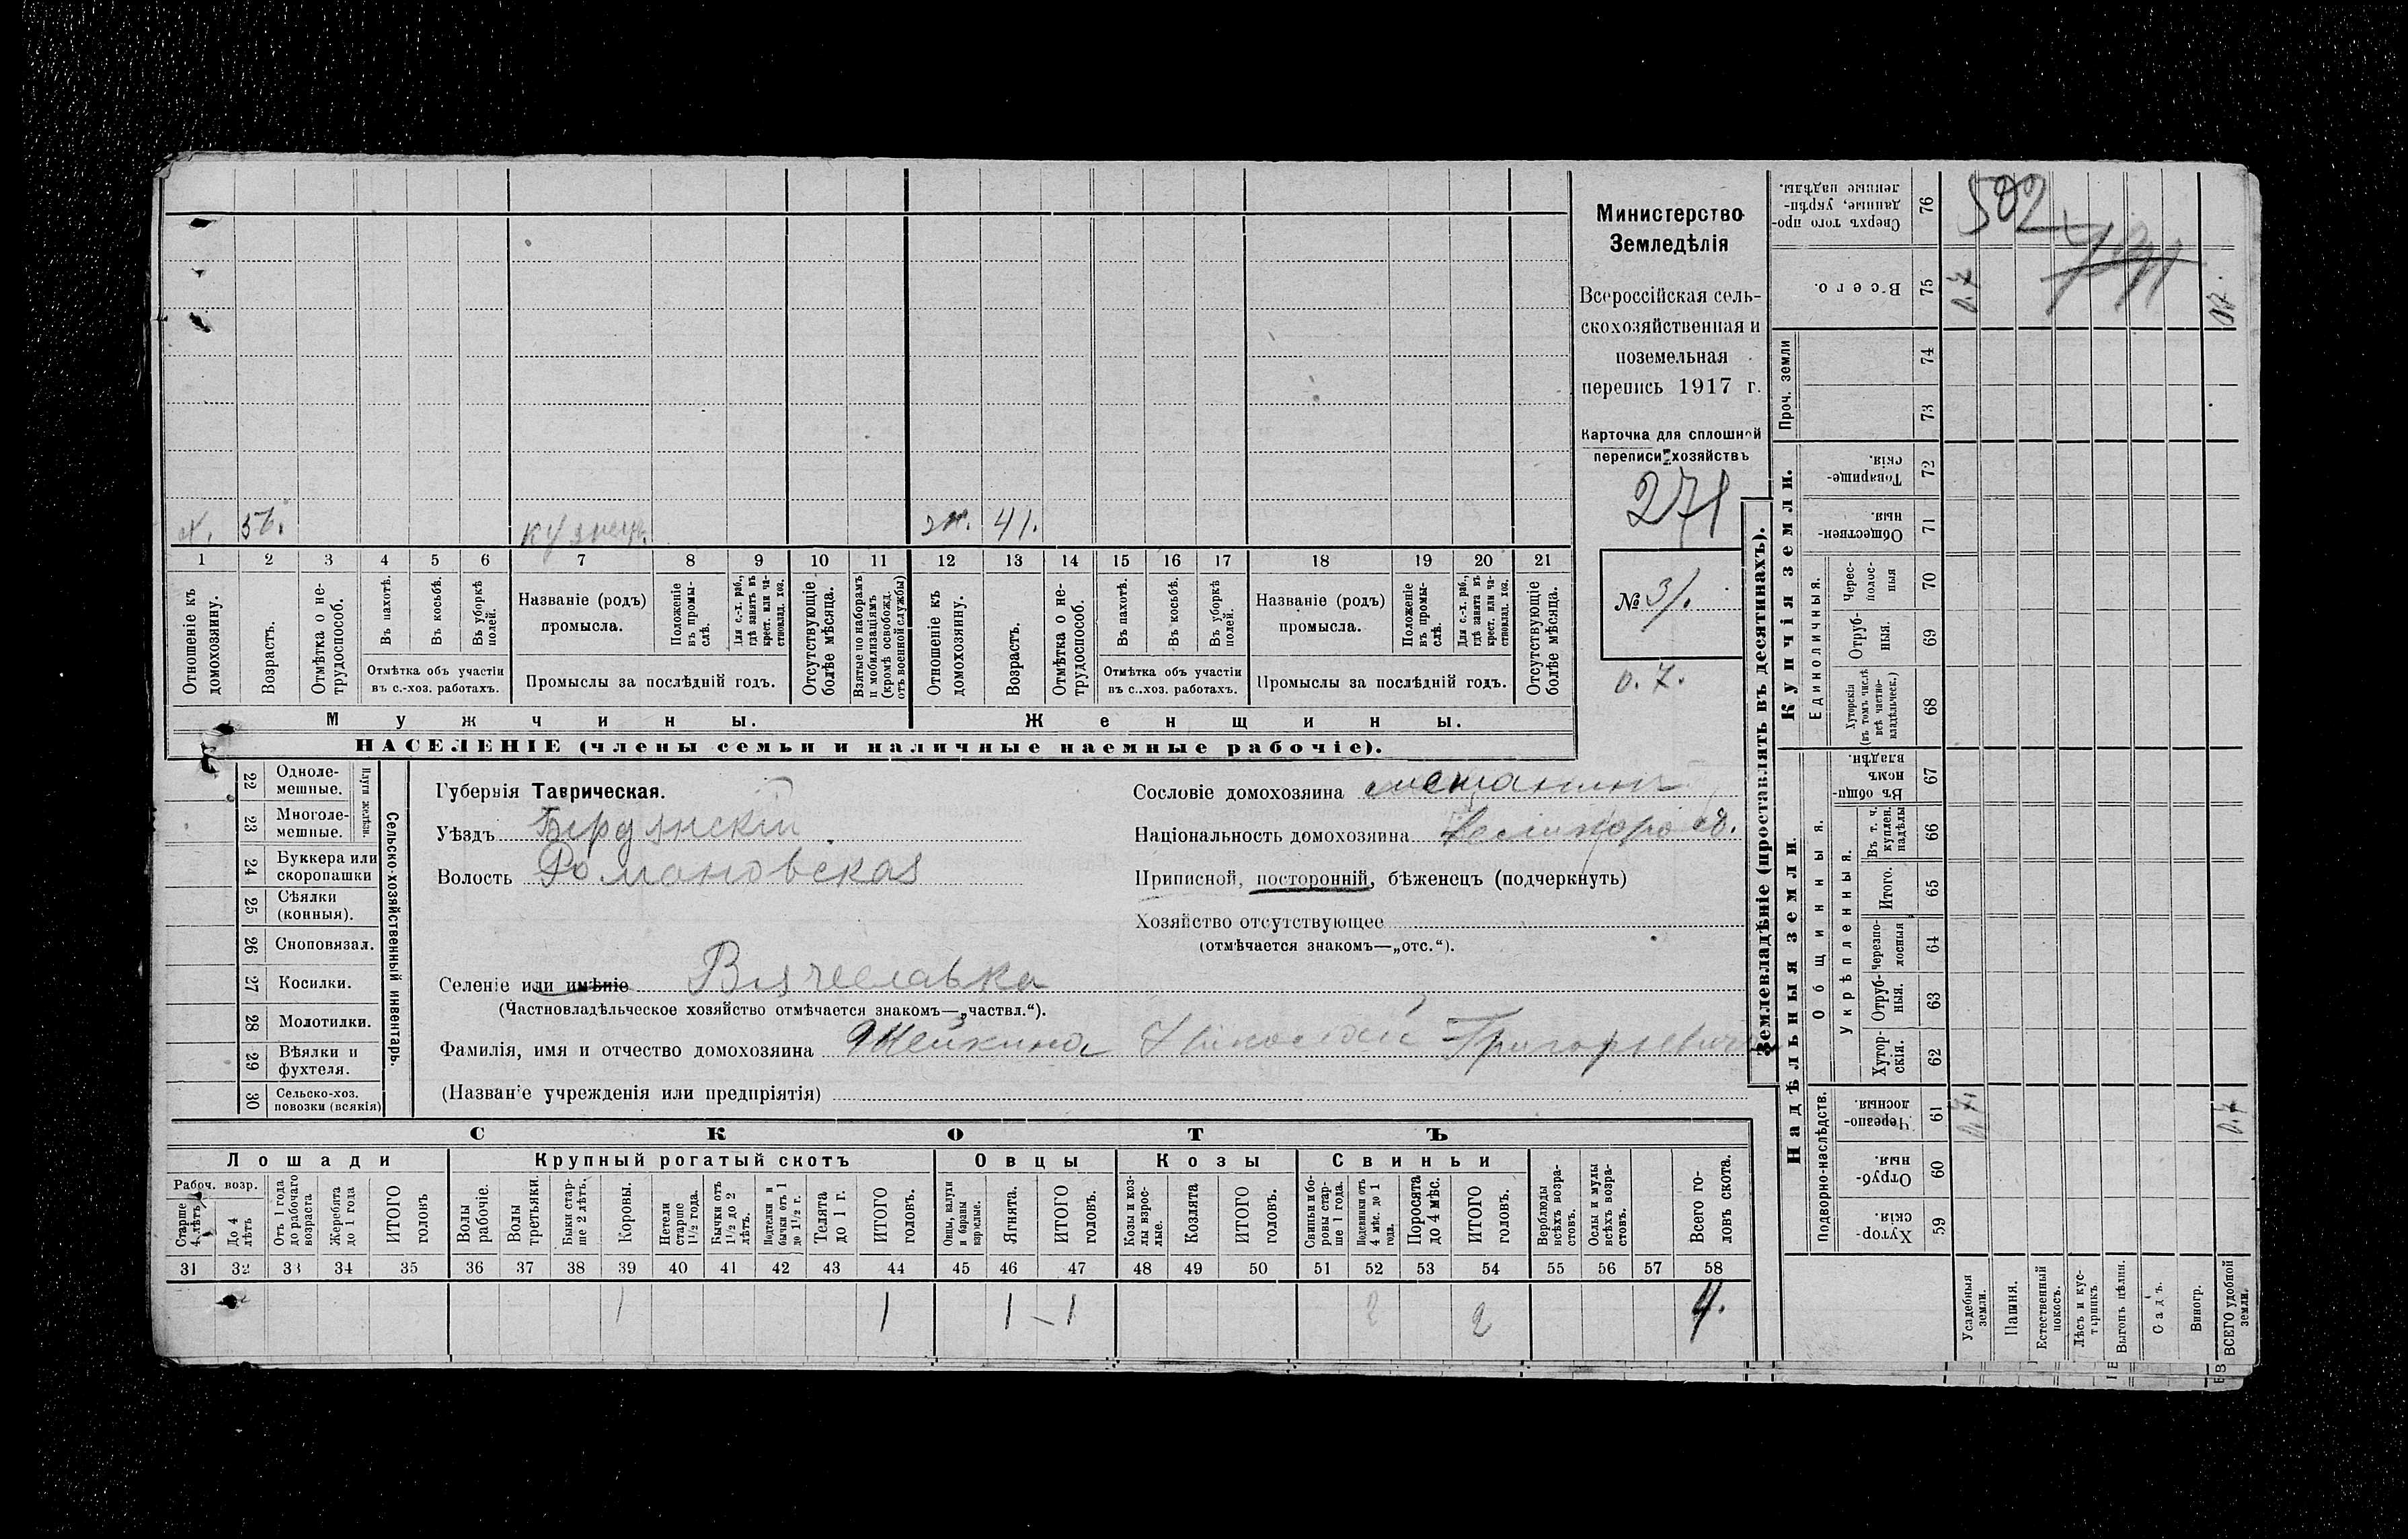 Министерство
Земледѣлія
Всероссійская сель-
скохозяйственная и
поземельная
перепись 1917 г.
Карточка для сплошной
переписи хозяйствъ
271
№ 31.
0.7.
х. 56. кузнецъ. эк. 41.
1 2 3 4 5 6 7 8 9 10 11 12 13 14 15 16 17 18 19 20 21
Отношеніе къ домохозяину.
Возрастъ.
Отмѣтка о не-трудоспособ.
Въ пахотѣ.
Въ косьбѣ.
Въ уборкѣ полей.
Отмѣтка объ участіи въ с.-хоз. работахъ.
Названіе (родъ) промысла.
Положеніе въ промы-слѣ.
Для с.-х. раб., гдѣ занятъ въ крест. или ча-ствовлад. хоз.
Промыслы за послѣдній годъ.
Отсутствующіе болѣе мѣсяца.
Взятые по наборамъ и мобилизаціямъ (кромѣ освобожд. отъ военной службы)
Отношеніе къ домохозяину.
Возрастъ.
Отмѣтка о не-трудоспособ.
Въ пахотѣ.
Въ косьбѣ.
Въ уборкѣ полей.
Отмѣтка объ участіи въ с..хоз. работахъ.
Названіе (родъ) промысла.
Положеніе въ промы-слѣ.
Для с.-х. раб., гдѣ занята въ крест. или ча-ствовлад. хоз.
Промыслы за послѣдній годъ.
Отсутствующіе болѣе мѣсяца.
Мужчины. Женщины.
НАСЕЛЕНІЕ (члены семьи и наличные наемные рабочіе).
22 Одноле-мешные.
23 Многоле-мешные.
Плуги желѣзн.
24 Буккера или скоропашки
25 Сѣялки (конныя).
26 Сноповязал.
27 Косилки.
28 Молотилки.
29 Вѣялки и фухтеля.
30 Сельско-хоз. повозки (всякія)
Сельско-хозяйственный инвентарь.
Губернія Таврическая.
Уѣздъ Бердянскій
Волость Романовская
Селеніе или имѣніе Вячеславка
(Частновладѣльческое хозяйство отмѣчается знакомъ—„частвл.“).
Фамилія, имя и отчество домохозяина Шейкина Николай Григорьевичъ
(Названіе учрежденія или предпріятія)
Сословіе домохозяина мещанинъ
Національность домохозяина
Приписной, посторонній, бѣженецъ (подчеркнуть)
Хозяйство отсутствующее
(отмѣчается знакомъ—„отс.“).
СКОТЪ
Лошади Крупный рогатый скотъ Овцы Козы Свиньи
Рабоч. возр.
Старше 4 лѣтъ
До 4 лѣтъ
Отъ 1 года до рабочаго возраста
Жеребята до 1 года
ИТОГО головъ
Волы рабочіе.
Волы третьяки.
Быки стар-ше 2 лѣтъ.
Коровы.
Нетели старше 1½ года.
Бычки отъ 1½ до 2 лѣтъ.
Подтелки и бычки отъ 1 до 1½ г.
Телята до 1 г.
ИТОГО головъ.
Овцы, валухи и бараны взрослые.
Ягнята.
ИТОГО головъ.
Козы и коз-лы взрос-лые.
Козлята
ИТОГО головъ.
Свиньи и бо-ровы стар-ше 1 года.
Подсвинки отъ 4 мѣс. до 1 года.
Поросята до 4 мѣс.
ИТОГО головъ.
Верблюды всѣхъ возра-стовъ.
Ослы и мулы всѣхъ возра-стовъ.
Всего го-ловъ скота.
31 32 33 34 35 36 37 38 39 40 41 42 43 44 45 46 47 48 49 50 51 52 53 54 55 56 57 58
1 1 1 – 1 2 2 4.
Землевладѣніе (проставлять въ десятинахъ).
Надѣльныя земли. Купчія земли. Проч. земли
Подворно-наслѣдств. Общинныя. Укрѣпленныя. Единоличныя.
Хутор-скія. 59
Отруб-ныя. 60
Черезпо-лосныя 61
Хутор-скія. 62
Отруб-ныя. 63
Черезпо-лосныя 64
Итого. 65
Въ т. ч. куплен. надѣлы 66
Въ общи-номъ владѣн. 67
Хуторскія (въ томъ числѣ всѣ частно-владѣльческ.) 68
Отруб-ныя. 69
Черес-полос-ныя 70
Обществен-ныя 71
Товарище-скія. 72
73
74
Всего. 75
Сверхъ того про-данные, укрѣп-ленные надѣлы. 76
502
0.7
0.7.
0.7
Усадебныя земли.
Пашня.
Естественный покосъ.
Лѣсъ и кус-тарникъ.
Выгонъ цѣлин.
Садъ.
Виногр.
ВСЕГО удобной земли.